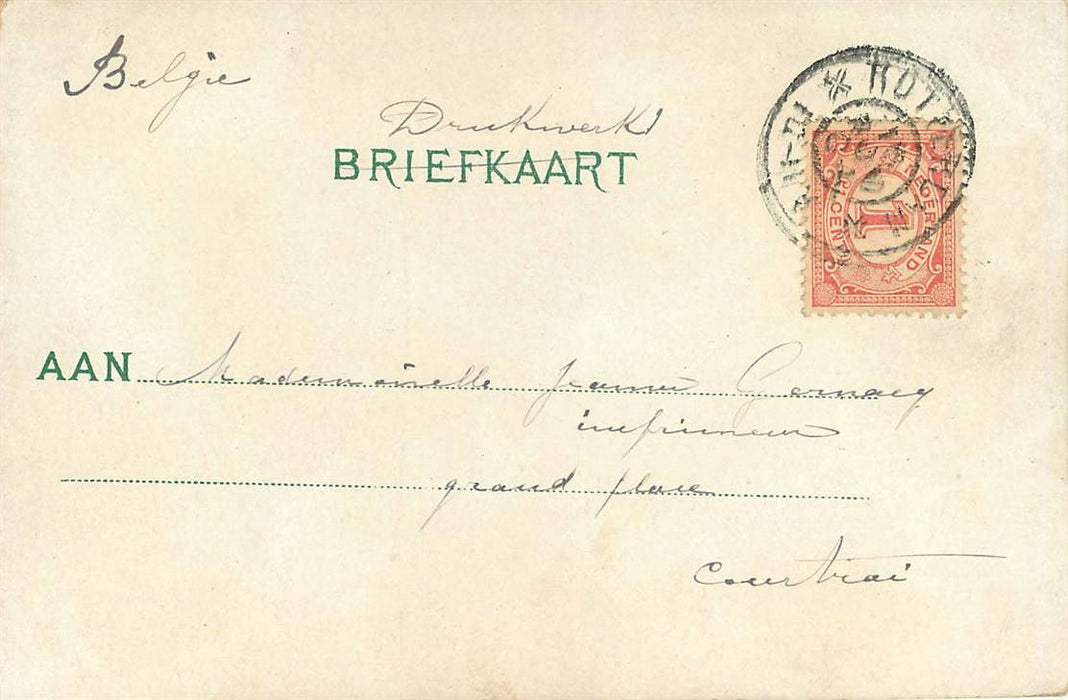 Belgie
Drukwerk
BRIEFKAART
AAN Mademoiselle Jeanne
imprimeur
grand place
Courtrai
NEDERLAND
1
CENT